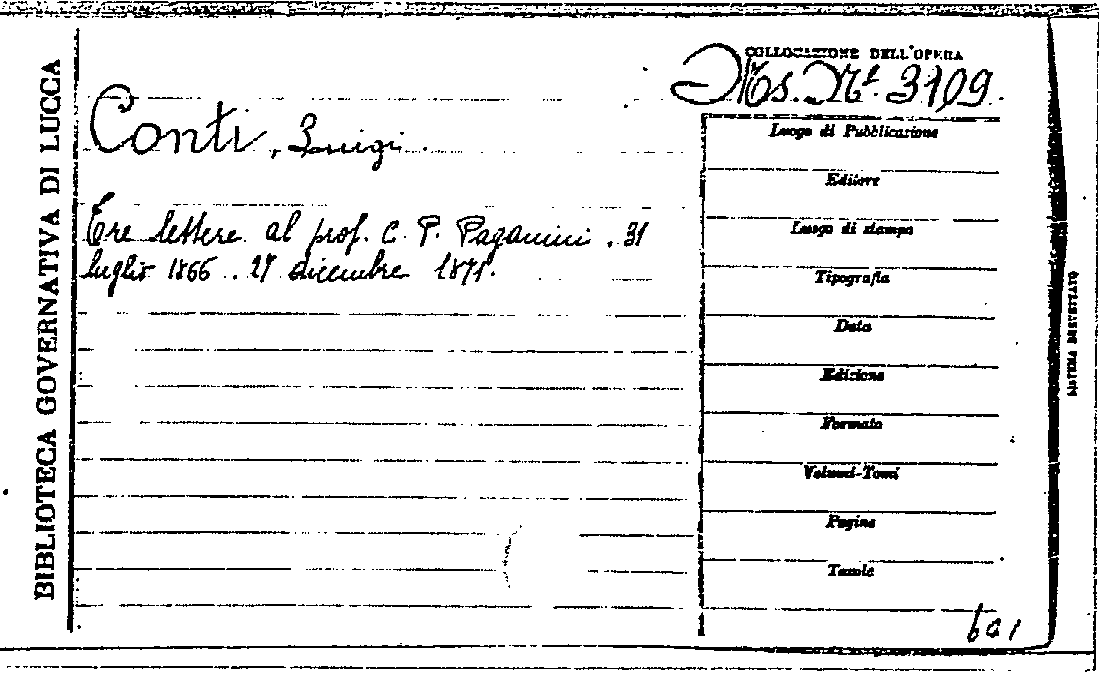 BIBLIOTECA GOVERNATIVA DI LUCCA
COLLOCAZIONE DELL'OPERA
Ms. Nº. 3109.
Conti, Luigi.
Tre lettere al prof. C. P. Paganini. 31
luglio 1866 . 27 dicembre 1871.
Luogo di Pubblicazione
Editore
Luogo di stampa
Tipografia
Data
Edizione
Formato
Volumi-Tomi
Pagine
Tavole